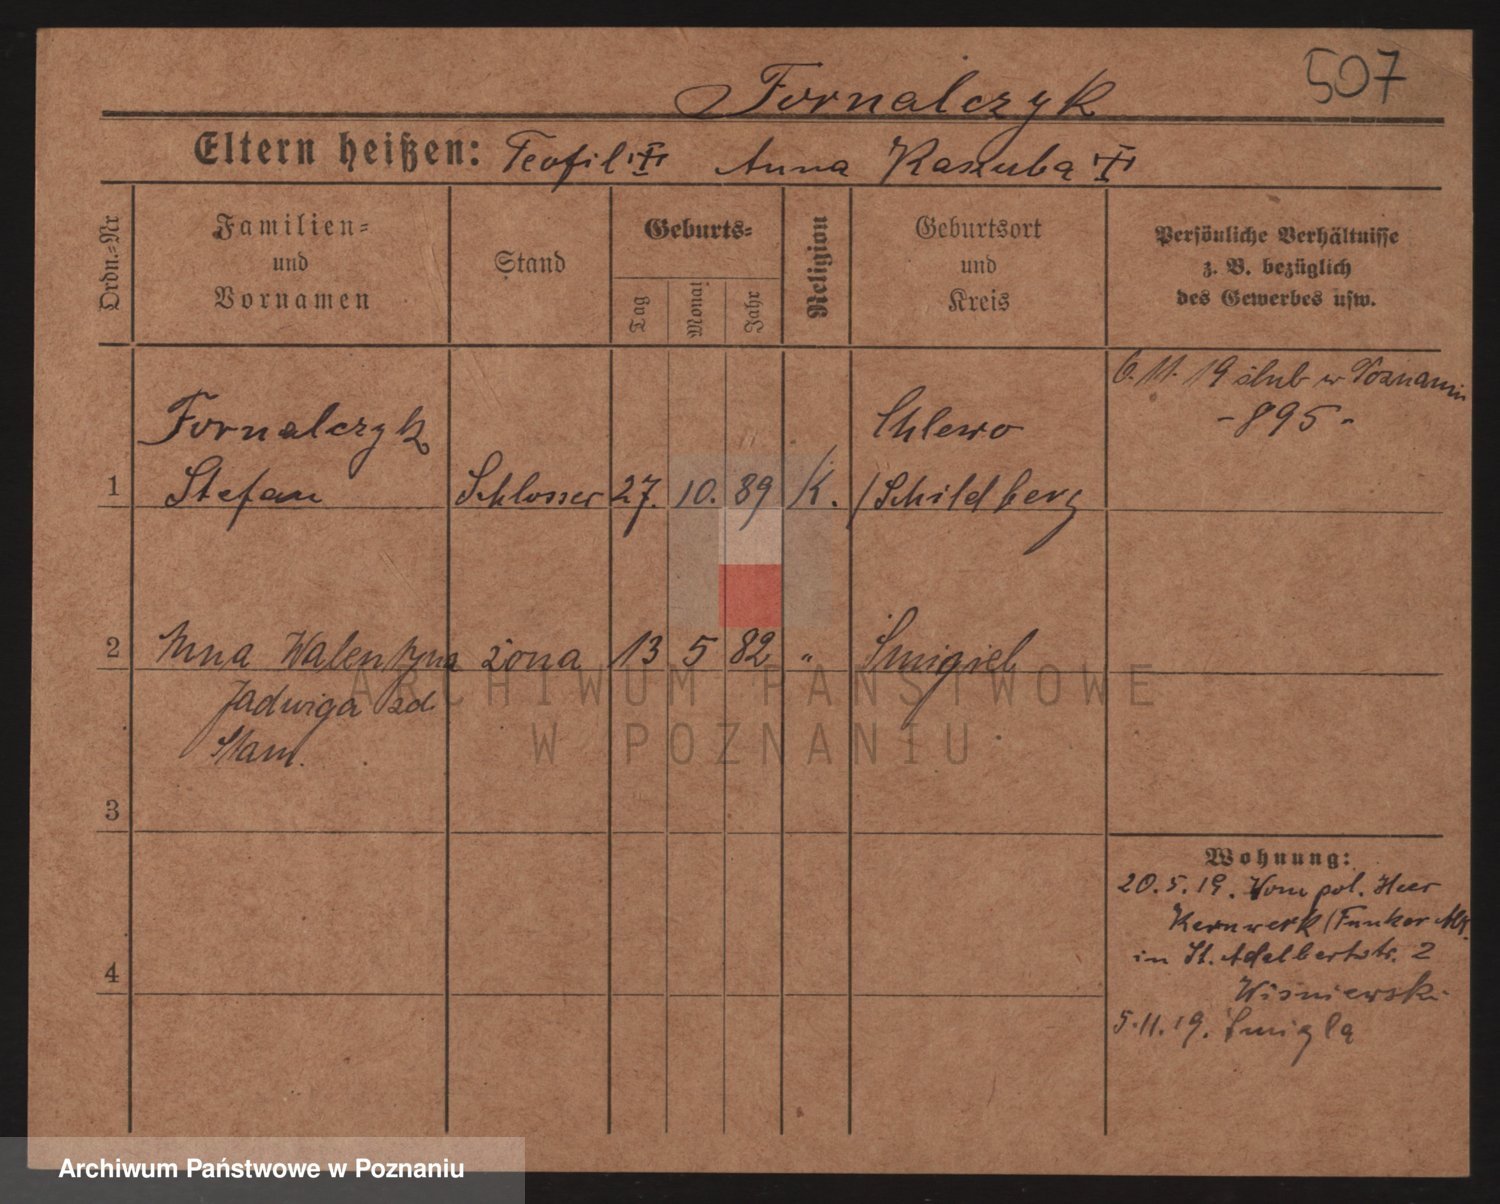 507
Fornalczyk
Eltern heißen: Teofil Anna Kaszuba
Ordn.-Nr
Familien-
und
Vornamen
Stand
Geburts-
Tag
Monat
Jahr
Religion
Geburtsort
und
Kreis
Persönliche Verhältnisse
z. B. bezüglich
des Gewerbes usw.
6. 11. 19 ślub w Poznaniu
- 895 -
Fornalczyk Chlewo
1 Stefan Schlosser 27. 10. 89 K. /Schildberg
2 Anna Walentyna żona 13 5 82 " Śmigiel
Jadwiga zd.
Stam.
3
4
Wohnung:
20. 5. 19. Vom pol. Heer
Kernwerk (Funker
in St. Adalbertstr. 2
Wisniewski
5. 11. 19. Śmigla
ARCHIWUM PAŃSTWOWE
W POZNANIU
Archiwum Państwowe w Poznaniu